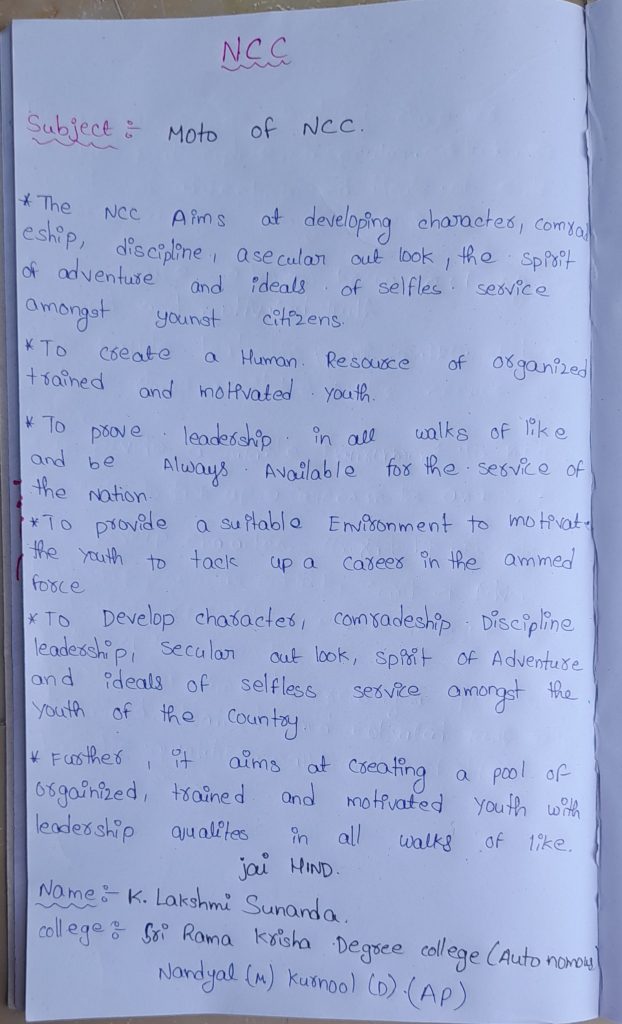 NCC
Subject :- Moto of NCC.
* The NCC Aims at developing character, comrad
eship, discipline, asecular out look, the spirit
of adventure and ideals of selfles service
amongst younst citizens.
* To create a Human Resource of organized
trained and motivated youth.
* To prove leadership in all walks of like
and be Always Available for the service of
the Nation.
* To provide a suitable Environment to motivate
the youth to tack up a career in the ammed
force
* To Develop character, comradeship Discipline
leadership, secular out look, spirit of Adventure
and ideals of selfless service amongst the
youth of the country.
* Further, it aims at creating a pool of
orgainized, trained and motivated youth with
leadership qualites in all walks of like.
jai HIND.
Name :- K. Lakshmi Sunanda.
college :- Sri Rama Krisha Degree college (Autonomous
Nandyal (M) Kurnool (D). (AP)